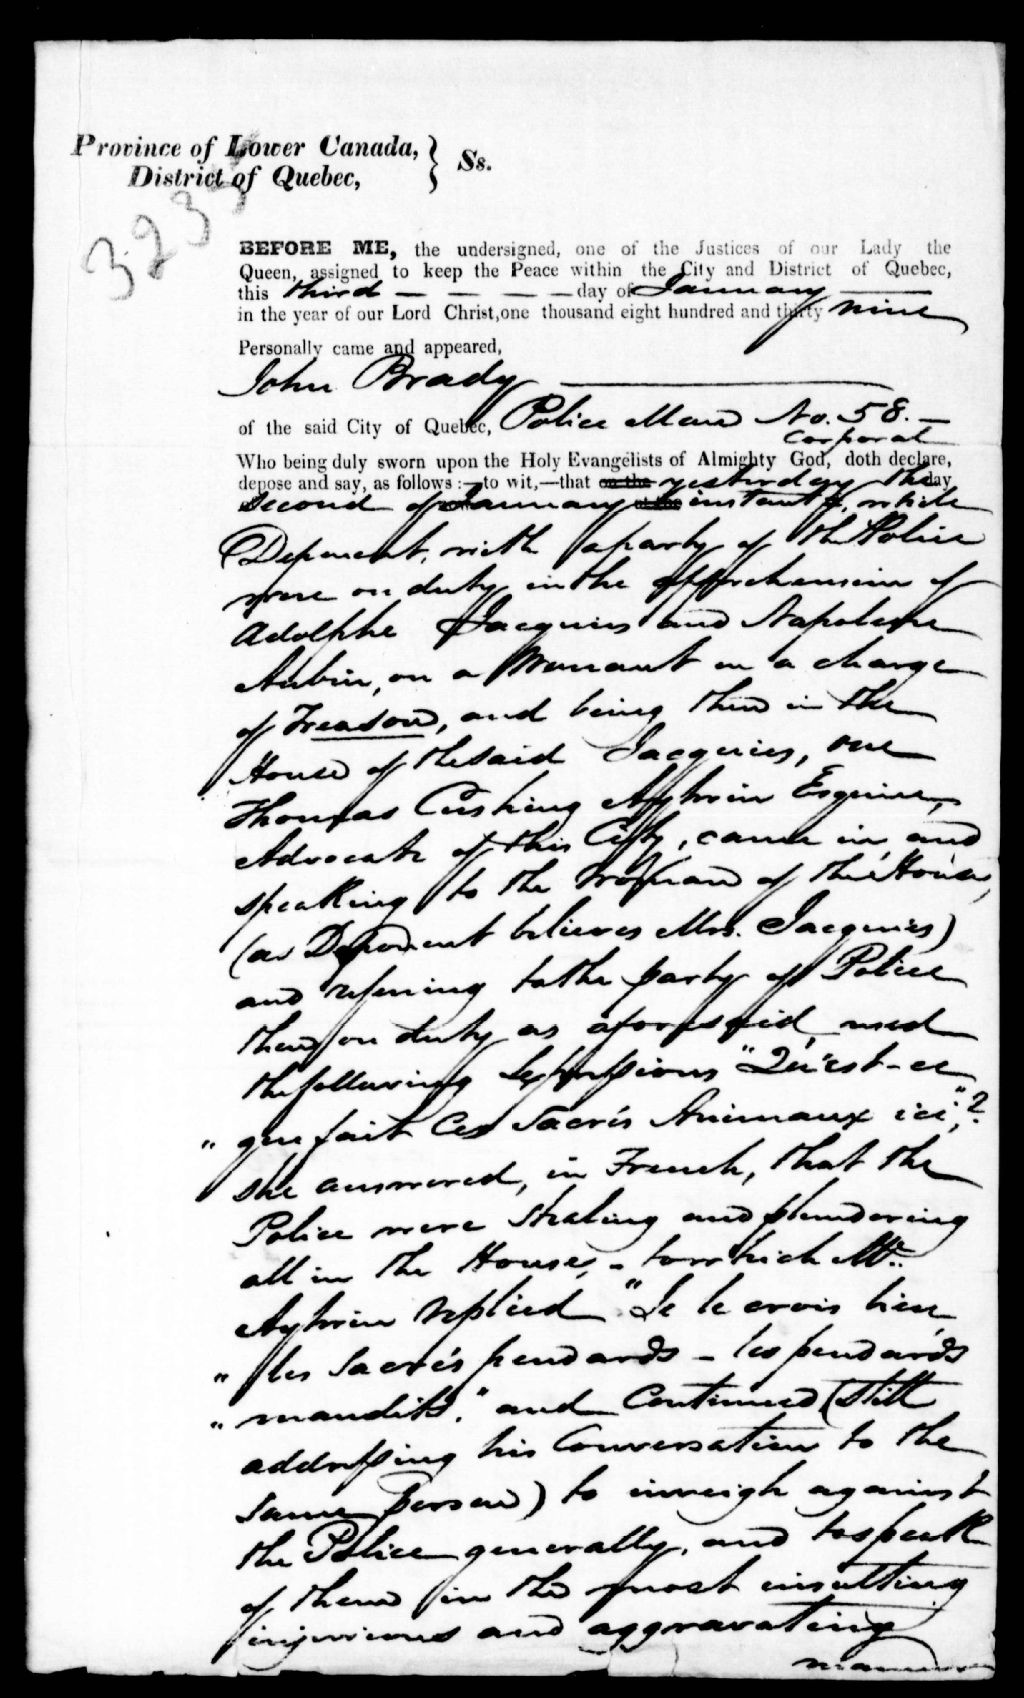 Province of Lower Canada,
District of Quebec, } Ss.
3235
BEFORE ME, the undersigned, one of the Justices of our Lady the
Queen, assigned to keep the Peace within the City and District of Quebec,
this third — — — — day of January ———
in the year of our Lord Christ, one thousand eight hundred and thirty nine
Personally came and appeared,
John Brady ———
of the said City of Quebec, Police Man No. 58. —
Corporal
Who being duly sworn upon the Holy Evangelists of Almighty God, doth declare,
depose and say, as follows :—to wit,—that on the yesterday the day
second of January instant, while
Deponent, with a party of the Police
were on duty in the apprehension of
Adolphe Jacquies and Napoleone
Aubin, on a Warrant on a charge
of Treason, and being then in the
House of the said Jacquies, one
Thomas Cushing Aylwin Esquire,
Advocate of this City, came in and
speaking to the Woman of the House,
(as Deponent believes Mrs. Jacquies)
and refering to the party of Police
then on duty as aforesaid, used
the following Expressions "Qu'est-ce
" que fait Ces Sacrés Animaux ici",?
she answered, in French, that the
Police were stealing and plundering
all in the House, - to which Mr.
Aylwin replied "Je le crois bien
" les Sacrés pendards - les pendards
" maudits." and Continued (still
addressing his Conversation to the
same person) to inveigh against
the Police generally, and to speak
of them in the most insulting
injurious and aggravating
manner